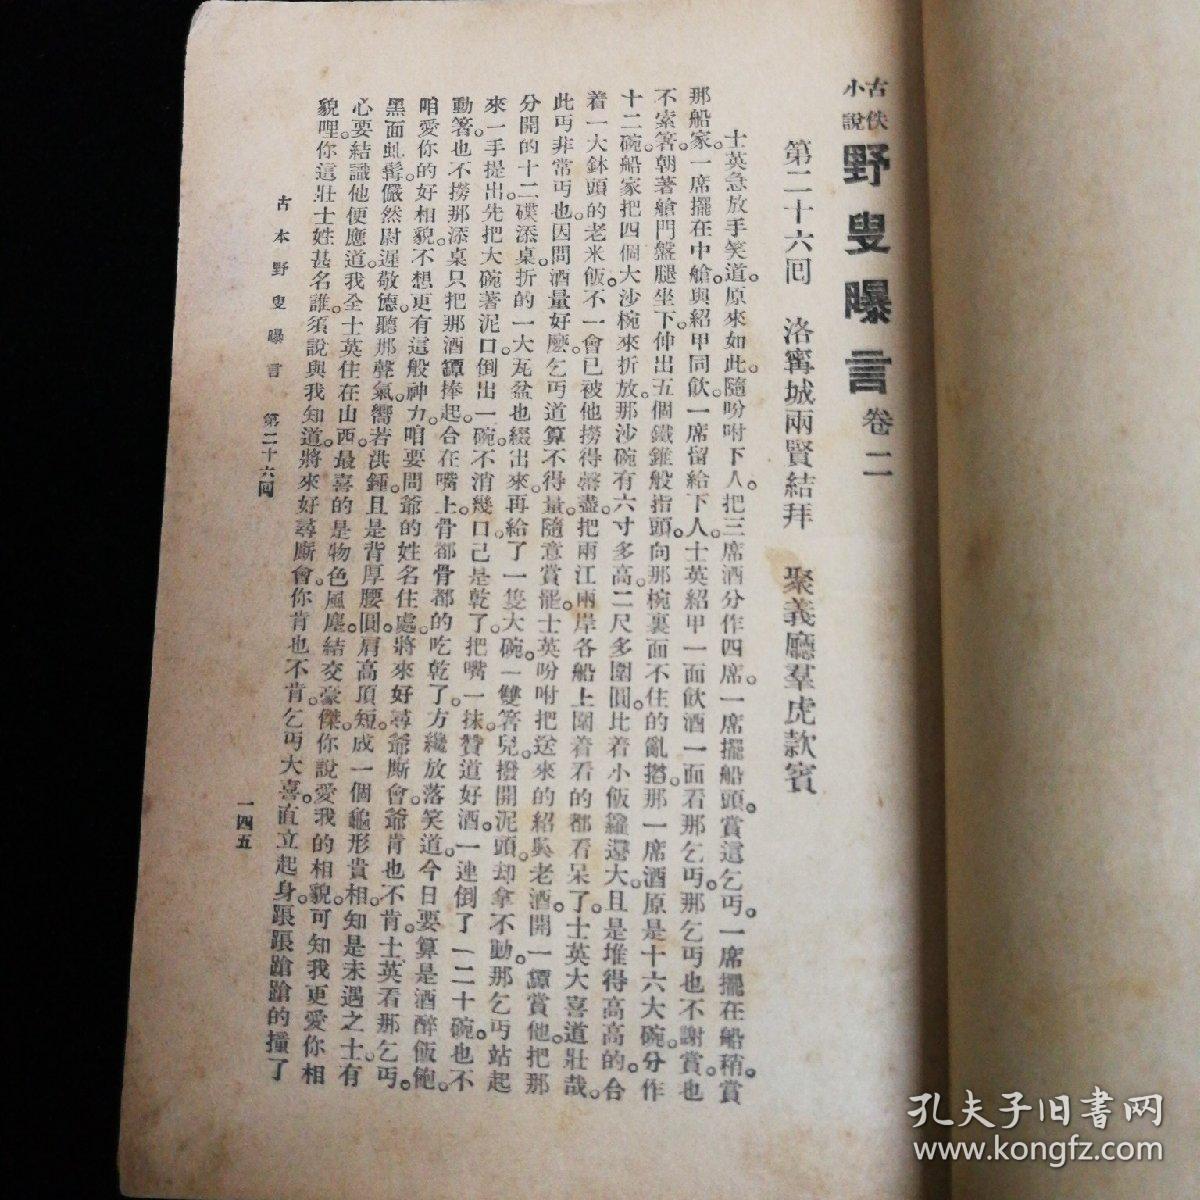 古佚小說
野叟曝言 卷二
第二十六回 洛甯城兩賢結拜 聚義廳羣虎款賓
士英急放手笑道。原來如此。隨吩咐下人。把三席酒分作四席。一席擺船頭。賞這乞丐。一席擺在船稍。賞
那船家。一席擺在中艙。與紹甲同飲。一席留給下人。士英紹甲一面飲酒。一面看那乞丐。那乞丐也不謝賞。也
不索箸。朝著艙門盤腿坐下。伸出五個鐵錐般指頭。向那椀裏面不住的亂搯。那一席酒原是十六大碗。分作
十二碗。船家把四個大沙椀來折放。那沙碗有六寸多高。二尺多圍圓。比着小飯鑼還大。且是堆得高高的。合
着一大鉢頭的老米飯。不一會已被他撈得罄盡。把兩江兩岸各船上圍着看的都看呆了。士英大喜道。壯哉。
此丐非常丐也。因問酒量好麽。乞丐道。算不得量。隨意賞罷。士英吩咐把送來的紹與老酒。開一罈賞他。把那
分開的十二碟添桌。折的一大瓦盆也綴出來。再給了一隻大碗。一雙箸兒。撥開泥頭。却拿不動。那乞丐站起
來。一手提出。先把大碗著泥口倒出一碗。不消幾口。己是乾了。把嘴一抹。贊道好酒。一連倒了一二十碗。也不
動箸。也不撈那添桌。只把那酒罈捧起。合在嘴上。骨都骨都的吃乾了。方纔放落。笑道。今日要算是酒醉飯飽。
咱愛你的好相貌。不想更有這般神力。咱要問爺的姓名住處。將來好尋爺廝會。爺肯也不肯。士英看那乞丐。
黑面虬髯。儼然尉遲敬德。聽那聲氣。響若洪鍾。且是背厚腰圓。肩高頂短。成一個龜形貴相。知是未遇之士。有
心要結識他。便應道。我全士英。住在山西。最喜的是物色風塵。結交豪傑。你說愛我的相貌。可知我更愛你相
貌哩。你這壯士姓甚名誰。須說與我知道。將來好尋廝會。你肯也不肯。乞丐大喜。直立起身。踉踉蹌蹌的撞了
古本野叟曝言 第二十六回 一四五
孔夫子旧书网
www.kongfz.com